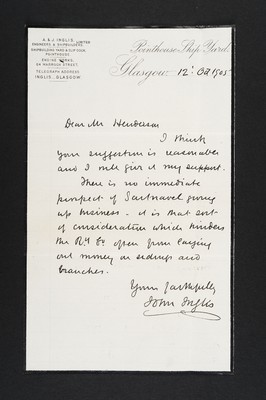 A. & J. INGLIS, LIMITED
ENGINEERS & SHIPBUILDERS.
SHIPBUILDING YARD & SLIP DOCK,
POINTHOUSE.
ENGINE WORKS,
24 WARROCH STREET.
TELEGRAPH ADDRESS,
INGLIS, GLASGOW.
Pointhouse Ship Yard,
Glasgow, 12 Oct 1905
Dear Mr Henderson
I think
your suggestion is reasonable
and I will give it my support.
There is no immediate
prospect of giving
up business - it is that sort
of consideration which hinders
the Rly Co often from laying
out money on sidings and
branches.
Yours faithfully
John Inglis